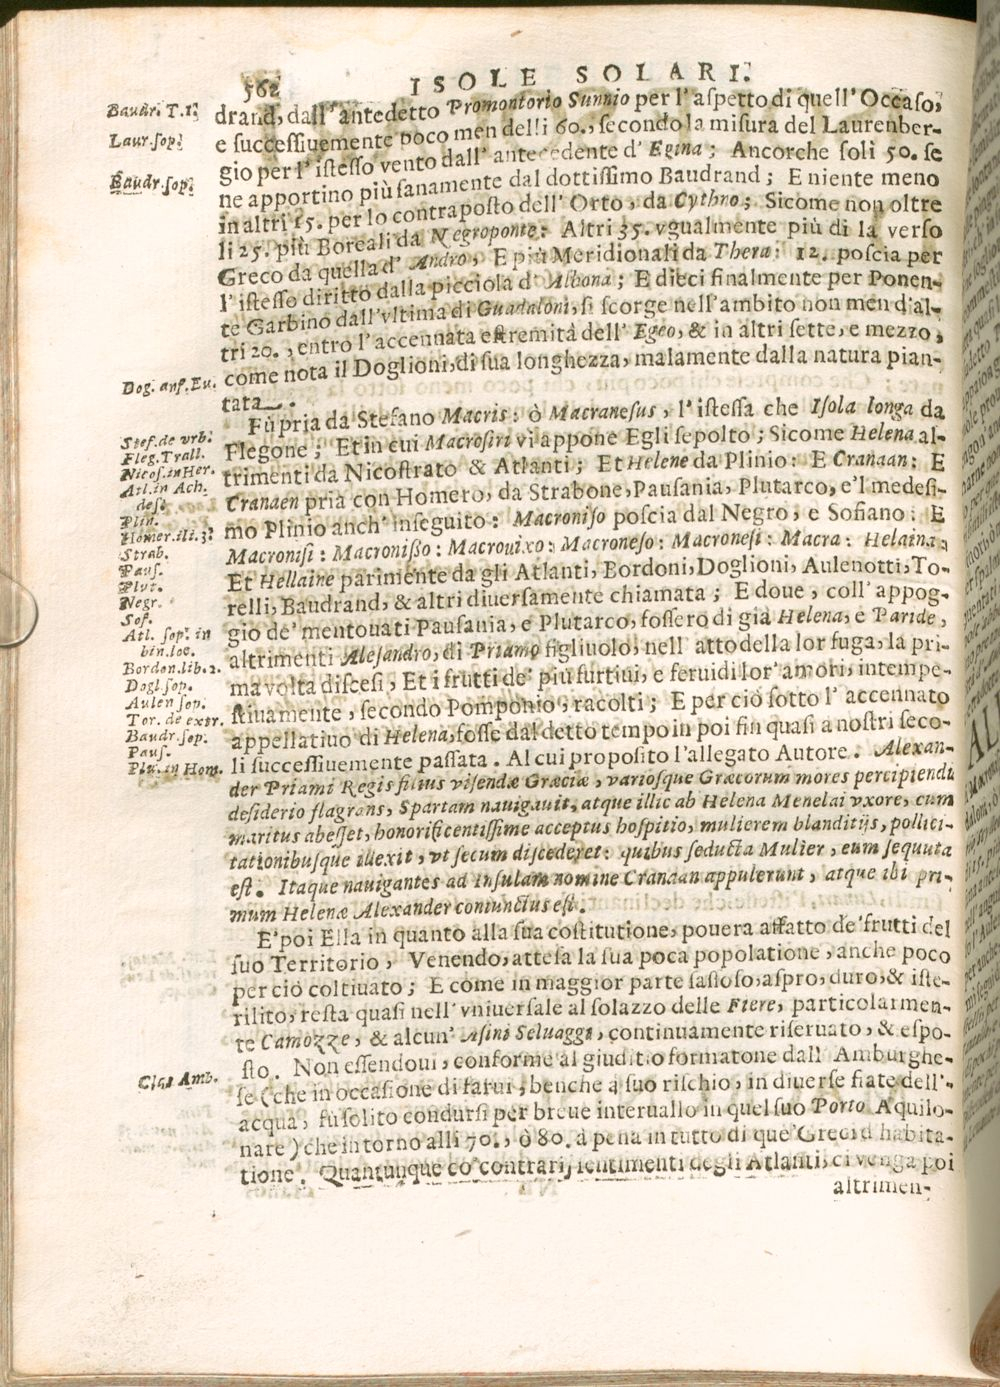 562 ISOLE SOLARI.
Baudr. T. 1.
Laur. sop.
Baudr. sop.
drand, dall'antedetto Promontorio Sunnio per l'aspetto di quell'Occaso,
e successiuemente poco men delli 60., secondo la misura del Laurenber-
gio per l'istesso vento dall'antecedente d'Egina; Ancorche soli 50. se
ne apportino più sanamente dal dottissimo Baudrand; E niente meno
in altri 15. per lo contraposto dell'Orto, da Cythno; Sicome non oltre
li 25. più Boreali da Negroponte: Altri 35. vgualmente più di là verso
Greco da quella d'Andro, E più Meridionali da Thera: 12. poscia per
l'istesso diritto dalla picciola d'Albona; E dieci finalmente per Ponen-
te Garbino dall'vltima di Guadaloni, si scorge nell'ambito non men d'al-
tri 20., entro l'accennata estremità dell'Egeo, & in altri sette, e mezzo,
come nota il Doglioni, di sua longhezza, malamente dalla natura pian-
tata.
Dog. anf. Eu.
Fù pria da Stefano Macris: ò Macranesus, l'istessa che Isola longa da
Flegone; Et in cui Macrosiri vi appone Egli sepolto; Sicome Helena al-
trimenti da Nicostrato & Atlanti; Et Helene da Plinio: E Cranaan: E
Cranaen pria con Homero, da Strabone, Pausania, Plutarco, e'l medesi-
mo Plinio anch'inseguito: Macroniso poscia dal Negro, e Sofiano: E
Macronisi: Macronisso: Macrouixo: Macroneso: Macronesi: Macra: Helaina:
Et Hellaine parimente da gli Atlanti, Bordoni, Doglioni, Aulenotti, To-
relli, Baudrand, & altri diuersamente chiamata; E doue, coll'appog-
gio de' mentouati Pausania, e Plutarco, fossero di già Helena, e Paride,
altrimenti Alesandro, di Priamo figliuolo, nell'atto della lor fuga, la pri-
ma volta discesi, Et i frutti de' più furtiui, e feruidi lor'amori, intempe-
stiuamente, secondo Pomponio, racolti; E per ciò sotto l'accennato
appellatiuo di Helena, fosse dal detto tempo in poi fin quasi a nostri seco-
li successiuemente passata. Al cui proposito l'allegato Autore. Alexan-
der Priami Regis filius visendæ Græciæ, variosque Græcorum mores percipiendi
desiderio flagrans, Spartam nauigauit, atque illic ab Helena Menelai vxore, cum
maritus abesset, honorificentissime acceptus hospitio, mulierem blanditijs, pollici-
tationibusque illexit, vt secum discederet: quibus seducta Mulier, eum sequuta
est. Itaque nauigantes ad insulam nomine Cranaan appulerunt, atque ibi pri-
mum Helenæ Alexander coniunctus est.
Stef. de vrb.
Fleg. Trall.
Nicos. in Her.
Atl. in Ach.
des.
Plin.
Homer. ili. 3.
Strab.
Paus.
Plut.
Negr.
Sof.
Atl. sop. in
bin. loc.
Bordon. lib. 2.
Dogl. sop.
Aulen sop.
Tor. de extr.
Baudr. sop.
Paus.
Plu. in Hom.
E' poi Ella in quanto alla sua costitutione, pouera affatto de' frutti del
suo Territorio, Venendo, attesa la sua poca popolatione, anche poco
per ciò coltiuato; E come in maggior parte sassoso, aspro, duro, & iste-
rilito, resta quasi nell'vniuersale al solazzo delle Fiere, particolarmen-
te Camozze, & alcun' Asini Seluaggi, continuamente riseruato, & espo-
sto. Non essendoui, conforme al giuditio formatone dall'Amburghe-
se (che in occasione di farui, benche a suo rischio, in diuerse fiate dell'-
acqua, fù solito condursi per breue interuallo in quel suo Porto Aquilo-
nare) che intorno alli 70., ò 80. à pena in tutto di que' Greci d'habita-
tione. Quantunque co' contrarij sentimenti degli Atlanti, ci venga poi
Clas Amb.
altrimen-